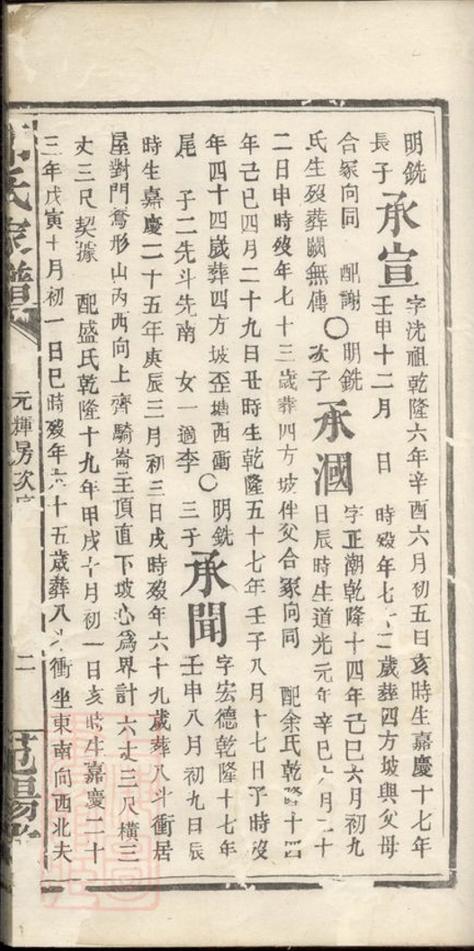 明銑長子
承宣
字沈祖乾隆六年辛酉六月初五日亥時生嘉慶十七年
壬申十二月　日　時歿年七十二歲葬四方坡與父母
合冢向同　配謝
氏生歿葬闕無傳〇次子
明銑
承溷
字正潮乾隆十四年己巳六月初九
日辰時生道光元年辛巳 月二十
二日申時歿年七十三歲葬四方坡伴父合冢向同　配余氏乾隆十四
年己巳四月二十九日丑時生乾隆五十七年壬子八月十七日予時歿
年四十四歲葬四方坡歪塘西衝〇明銑
尾　子二先斗先南　女一適李　三子
承聞
字宏德乾隆十七年
壬申八月初九日辰
時生嘉慶二十五年庚辰三月初三日戌時歿年六十九歲葬八斗衝居
屋對門鴦形山內西向上齊騎崙主頂直下坡心為界計六丈三尺橫三
丈三尺契據　配盛氏乾隆十九年甲戌十月初一日亥時生嘉慶二十
三年戊寅十月初一日巳時歿年六十五歲葬八斗衝坐東南向西北夫
氏家譜
元輝房次
二
范陽